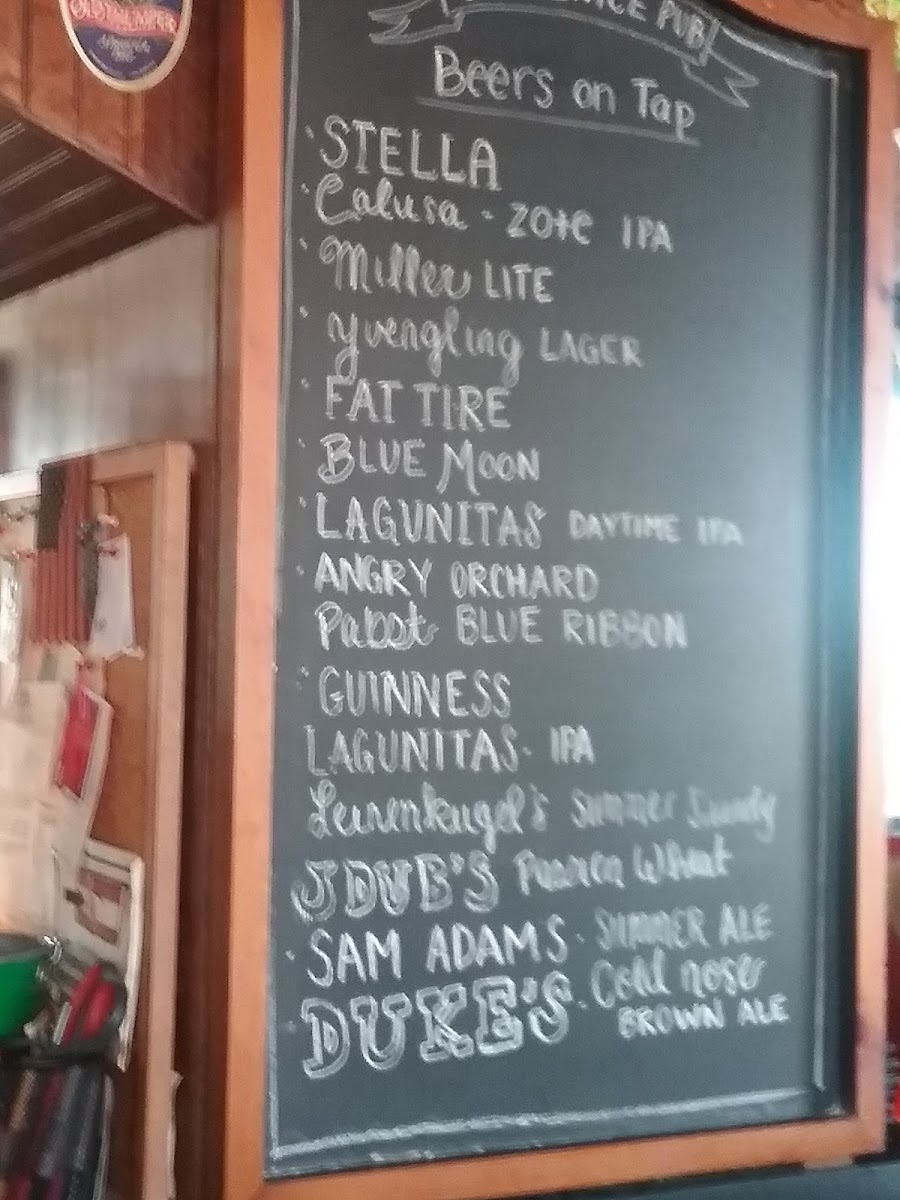 OLD THUMPER
PUB
Beers on Tap
· STELLA
· Calusa - ZOTE IPA
· Miller LITE
· Yuengling LAGER
· FAT TIRE
· BLUE MOON
· LAGUNITAS DAYTIME IPA
· ANGRY ORCHARD
Pabst BLUE RIBBON
· GUINNESS
LAGUNITAS - IPA
Leinenkugel's Summer Shandy
JDUB'S Passion Wheat
· SAM ADAMS · SUMMER ALE
· DUKE'S · Cold nose
BROWN ALE